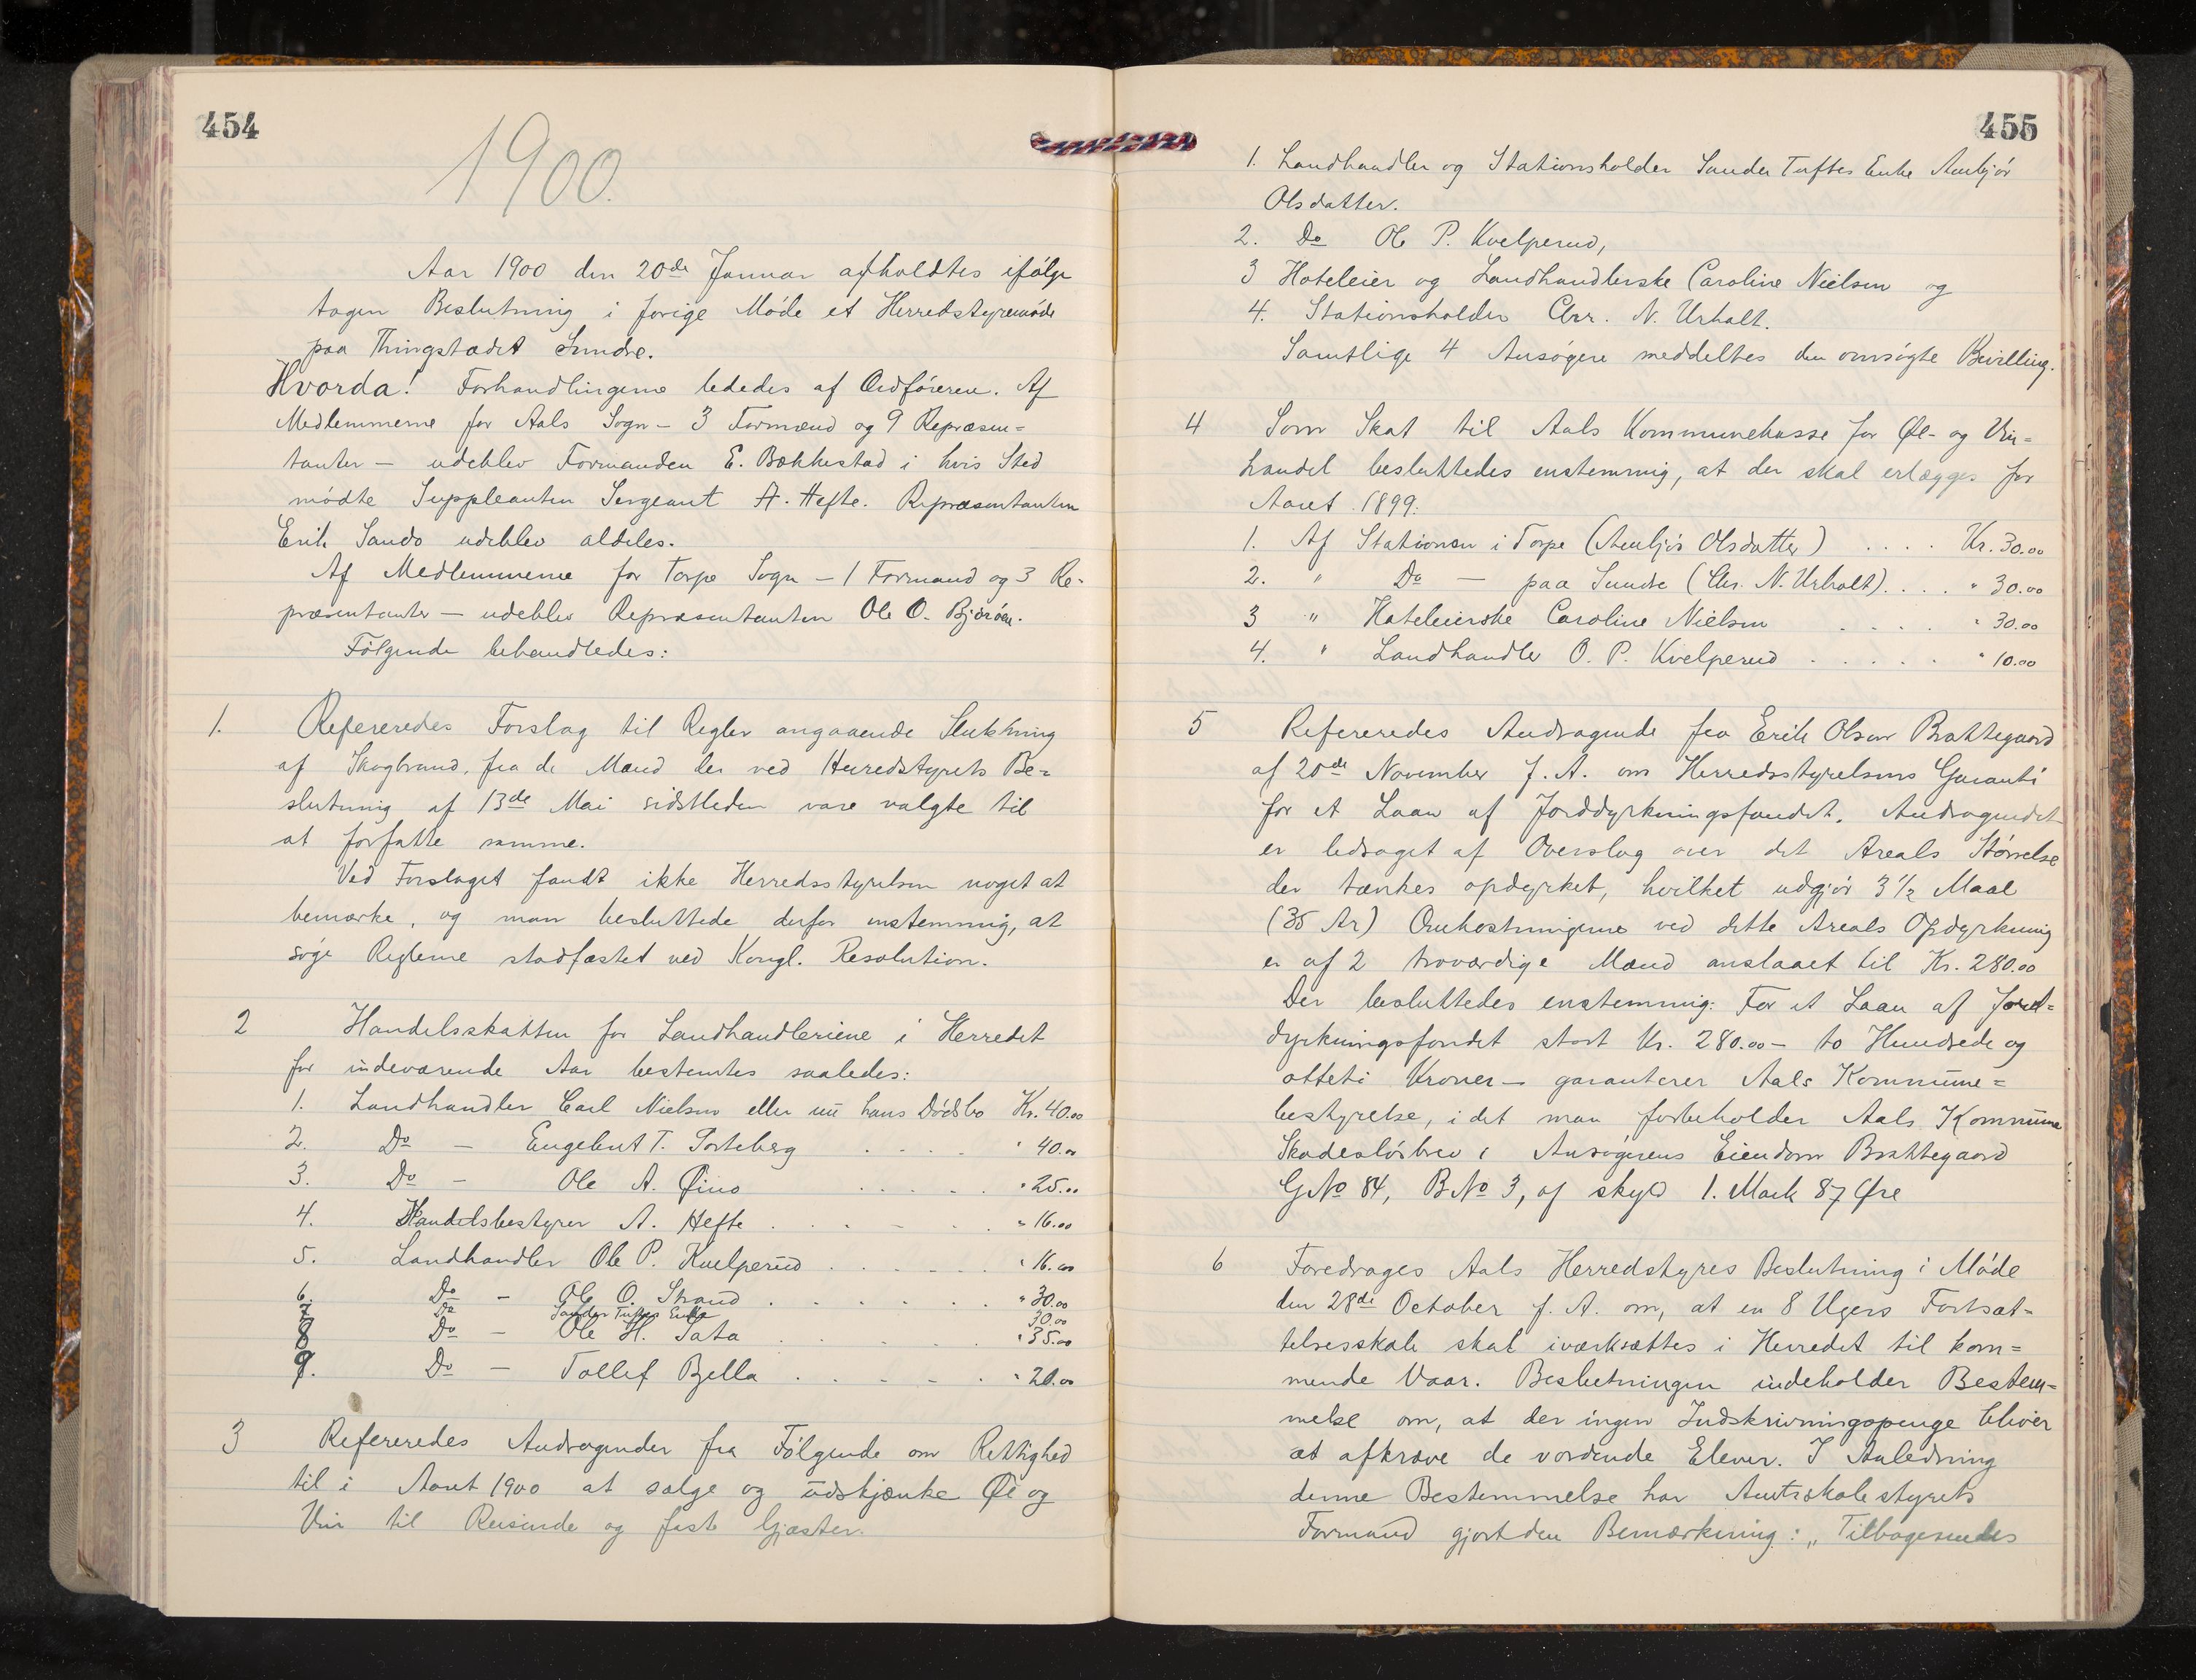 454
1900.
Aar 1900 den 20de Januar afholdtes ifølge
tagen Beslutning i forige Møde et Herredstyremøde
paa Thingstædet Sundre.
Hvorda! Forhandlingerne lededes af Ordføreren. Af
Medlemmerne for Aals Sogn – 3 Formænd og 9 Repræsen=
tanter – udeblev Formanden E. Bækkestad i hvis Sted
mødte Suppleanten Sergeant A. Hefte. Repræsentanten
Erik Sando udeblev aldeles.
Af Medlemmerne for Torpe Sogn – 1 Formand og 3 Re=
præsentanter – udeblev Repræsentanten Ole O. Bjøróen.
Følgende behandledes:
1. Refereredes Forslag til Regler angaaende Slukkning
af Skogbrand, fra de Mænd der ved Herredstyrets Be=
slutning af 13de Mai sidstleden vare valgte til
at forfatte samme.
Ved Forslaget fandt ikke Herredsstyrelsen noget at
bemærke, og man besluttede derfor enstemmig, at
søge Reglerne stadfæstet ved Kongl. Resolution.
2 Handelsskatten for Landhandleriene i Herredet
for indeværende Aar bestemtes saaledes:
1. Landhandler Carl Nielsen eller nu hans Dødsbo Kr. 40.00
2. Do – Engebret T. Porteberg . . . . " 40.00
3. Do – Ole A. Øino . . . . . " 25.00
4. Handelsbestyrer A. Hefte . . . – . . " 16.00
5. Landhandler Ole P. Kvelperud . . . . . . " 16.00
6. Do – Ole O. Strand . . . . . . . " 30.00
7 Do Sander Tuftes Enke 30.00
8 Do – Ole H. Sata . . . . . . " 35.00
9. Do – Tollef Bjella . . . . – . " 20.00
3 Refereredes Andragender fra Følgende om Rettighed
til i Aaret 1900 at sælge og udskjænke Øl og
Vin til Reisende og faste Gjæster.
455
1. Landhandler og Stationsholder Sander Tuftes Enke Anbjør
Olsdatter.
2. Do Ole P. Kvelperud,
3 Hoteleier og Landhandlerske Caroline Nielsen og
4. Stationsholder Chr. N. Urhalt.
Samtlige 4 Ansøgere meddeltes den ansøgte Bevilling.
4 Som Skat til Aals Kommunekasse for Øl- og Vin=
handel besluttedes enstemmig, at der skal erlægges for
Aaret 1899.
1. Af Stationen i Torpe (Anbjør Olsdatter) . . . . Kr. 30.00
2. " Do – paa Sundre (Chr. N. Urhalt). . . . " 30.00
3 " Hoteleierske Caroline Nielsen . . . . " 30.00
4. " Landhandler O. P. Kvelperud . . . . . . " 10.00
5 Refereredes Andragende fra Erik Olsen Brattegaard
af 20de November f. A. om Herredsstyrelsens Garanti
for et Laan af Jorddyrkningsfondet. Andragendet
er ledsaget af Overslag over det Areals Størrelse
der tænkes opdyrket, hvilket udgjør 3 1/2 Maal
(35 Ar) Omkostningerne ved dette Areals Opdyrkning
er af 2 troværdige Mænd anslaaet til Kr. 280.00
Der besluttedes enstemmig: For et Laan af Jord=
dyrkningsfondet stort Kr. 280.00 – to Hundrede og
otteti Kroner – garanterer Aals Kommune=
bestyrelse, i det man forbeholder Aals Kommune
Skadesløsbrev i Ansøgerens Eiendom Brattegaard
GNo 84, BNo 3, af skyld 1. Mark 87 Øre
6 Foredrages Aals Herredstyres Beslutning i Møde
den 28de October f. A. om, at en 8 Ugers Fortsæt=
telsesskole skal iværksættes i Herredet til kom=
mende Vaar. Beslutningen indeholder Bestem=
melse om, at der ingen Indskrivningspenge bliver
at afkræve de vordende Elever. I Anledning
denne Bestemmelse har Amtsskolestyrets
Formand gjort den Bemærkning: „Tilbagesendes